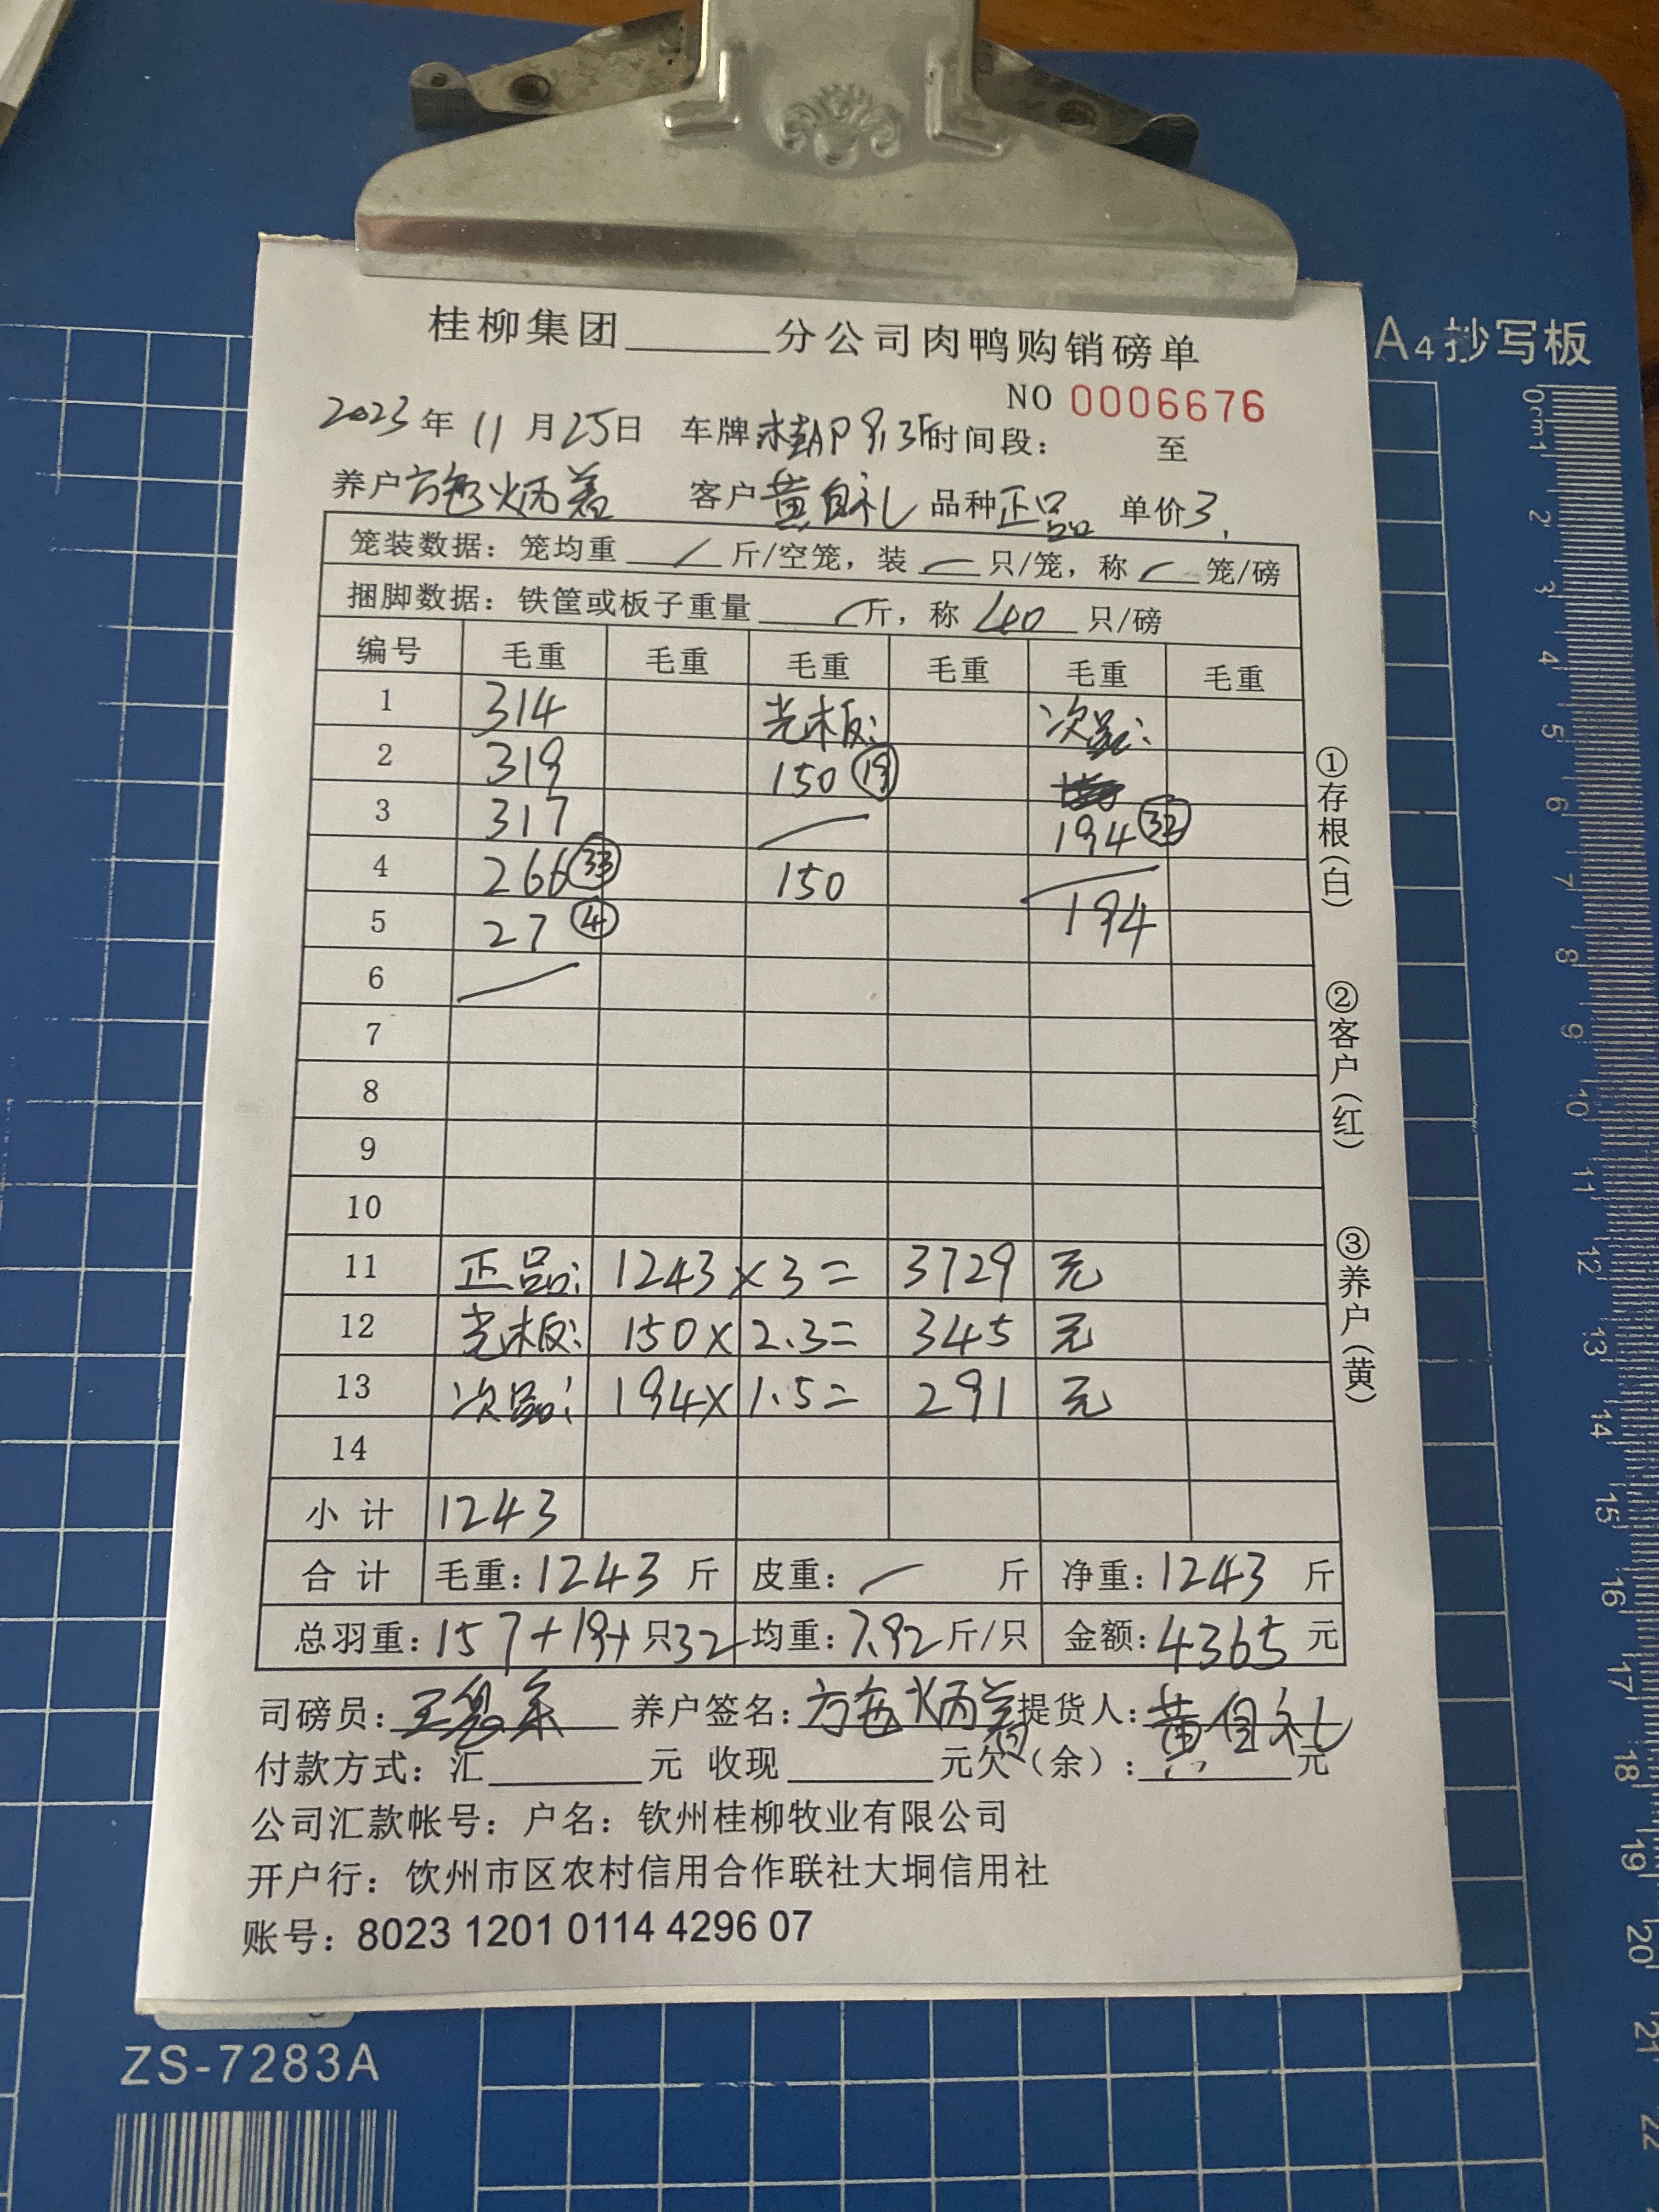 A4抄写板
桂柳集团______分公司肉鸭购销磅单
NO 0006676
2023年11月25日 车牌 时间段： 至
养户 客户黄自礼 品种正品 单价3
笼装数据：笼均重 / 斤/空笼，装 / 只/笼，称 / 笼/磅
捆脚数据：铁筐或板子重量 / 斤，称 40 只/磅
编号 毛重 毛重 毛重 毛重 毛重 毛重
1 314 光板： 次品：
2 319 150 ⑲
3 317 194 ㉜
4 266 ㉝ 150
5 27 ④ 194
6
7
8
9
10
11 正品： 1243×3= 3729 元
12 光板： 150×2.3= 345 元
13 次品： 194×1.5= 291 元
14
小计 1243
合计 毛重：1243 斤 皮重： / 斤 净重：1243 斤
总羽重：157+19+ 只32 均重：7.92斤/只 金额：4365 元
司磅员： 养户签名： 提货人：黄自礼
付款方式：汇______元 收现______元欠（余）：______元
公司汇款帐号：户名：钦州桂柳牧业有限公司
开户行：钦州市区农村信用合作联社大垌信用社
账号：8023 1201 0114 4296 07
①存根（白） ②客户（红） ③养户（黄）
ZS-7283A
0cm1 2 3 4 5 6 7 8 9 10 11 12 13 14 15 16 17 18 19 20 21 22